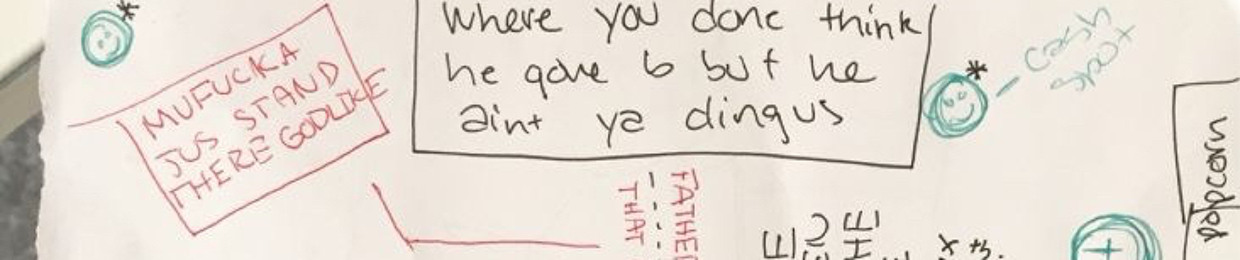 Where you done think
he gave 6 but he
aint ya dingus
MUFUCKA
JUS STAND
THERE GODLIKE
cash
spot
FATHER
THAT
popcorn